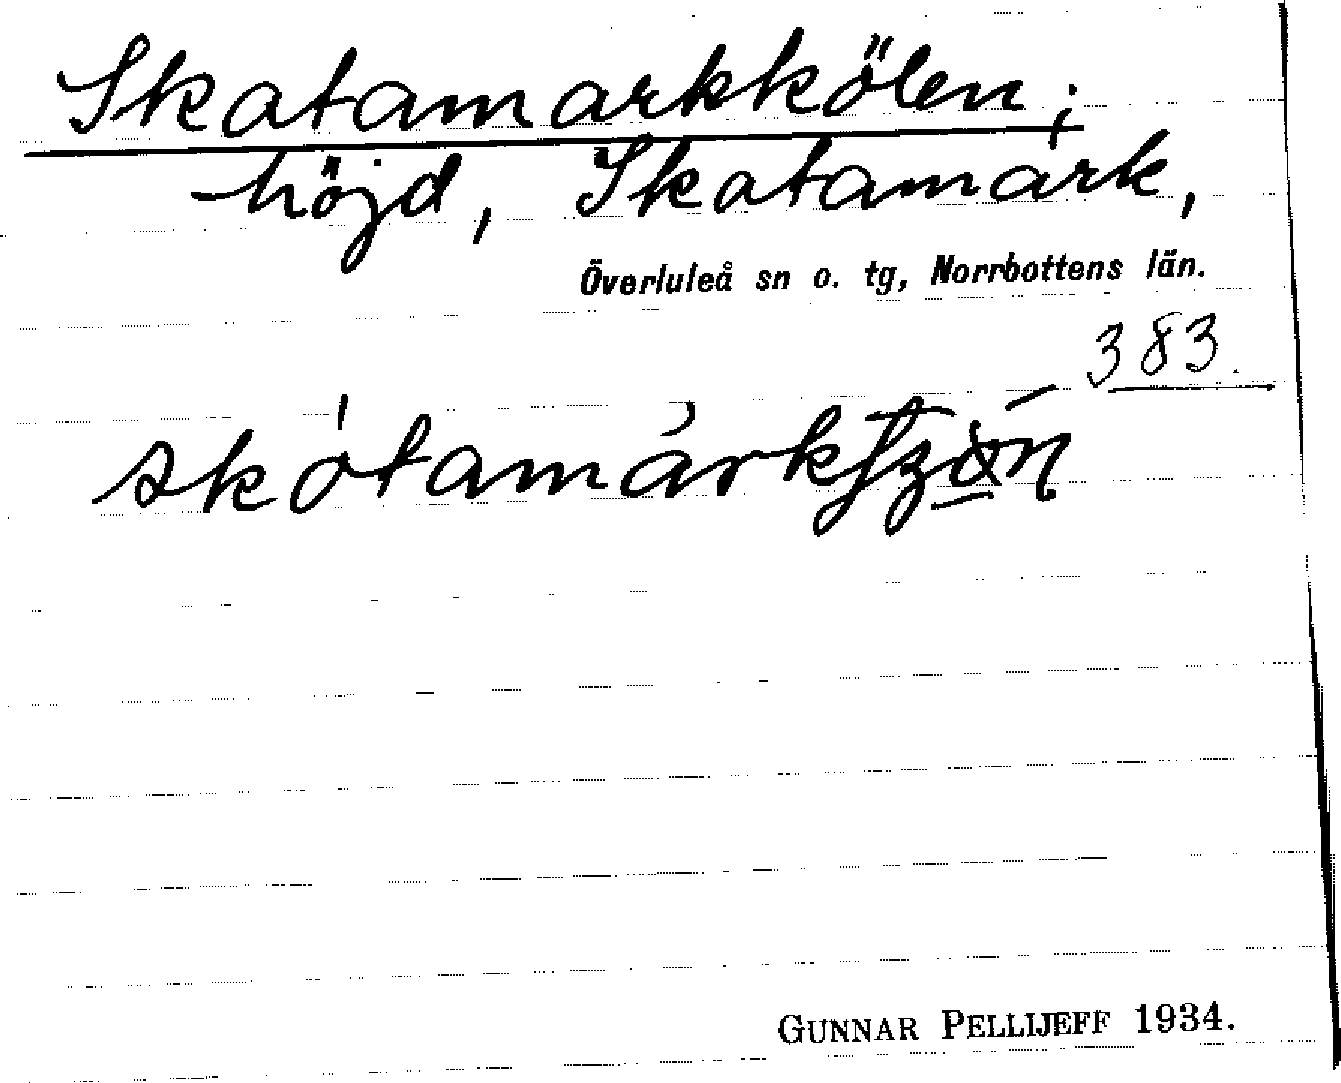 Skatamarkkölen;
höjd, Skatamark,
Överluleå sn o. tg, Norrbottens län.
383.
GUNNAR PELLIJEFF 1934.